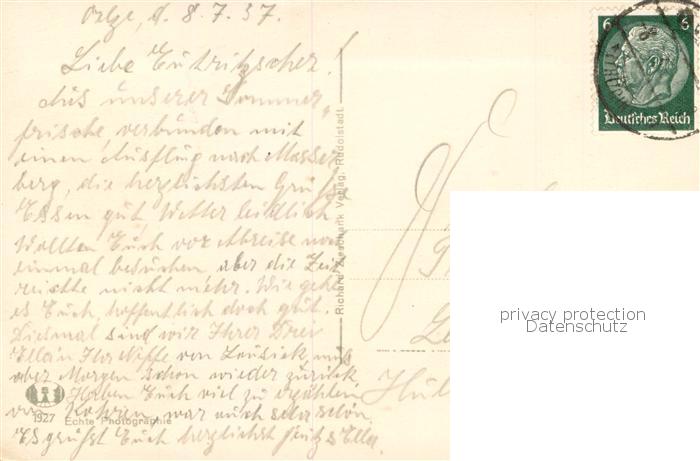 d. 8.7.37.
Liebe Eutritzscher!
Aus unserer Sommer„
frische verbunden mit
einem Ausflug nach Masser
berg, die herzlichsten Grüße
Essen gut, Wetter leidlich
Wollten Euch vor Abreise noch
einmal besuchen aber die Zeit
reichte nicht mehr. Wie geht
es Euch, hoffentlich doch gut.
Diesmal sind wir Ihrer Drei
Ella's Neffe von muß
aber Morgen schon wieder zurück
Haben Euch viel zu erzählen
von war auch sehr schön.
Es grüßt Euch herzlichst Fritz & Ella.
1927 Echte Photographie
Richard Zieschank Verlag, Rudolstadt
6 6
Deutsches Reich
privacy protection
Datenschutz